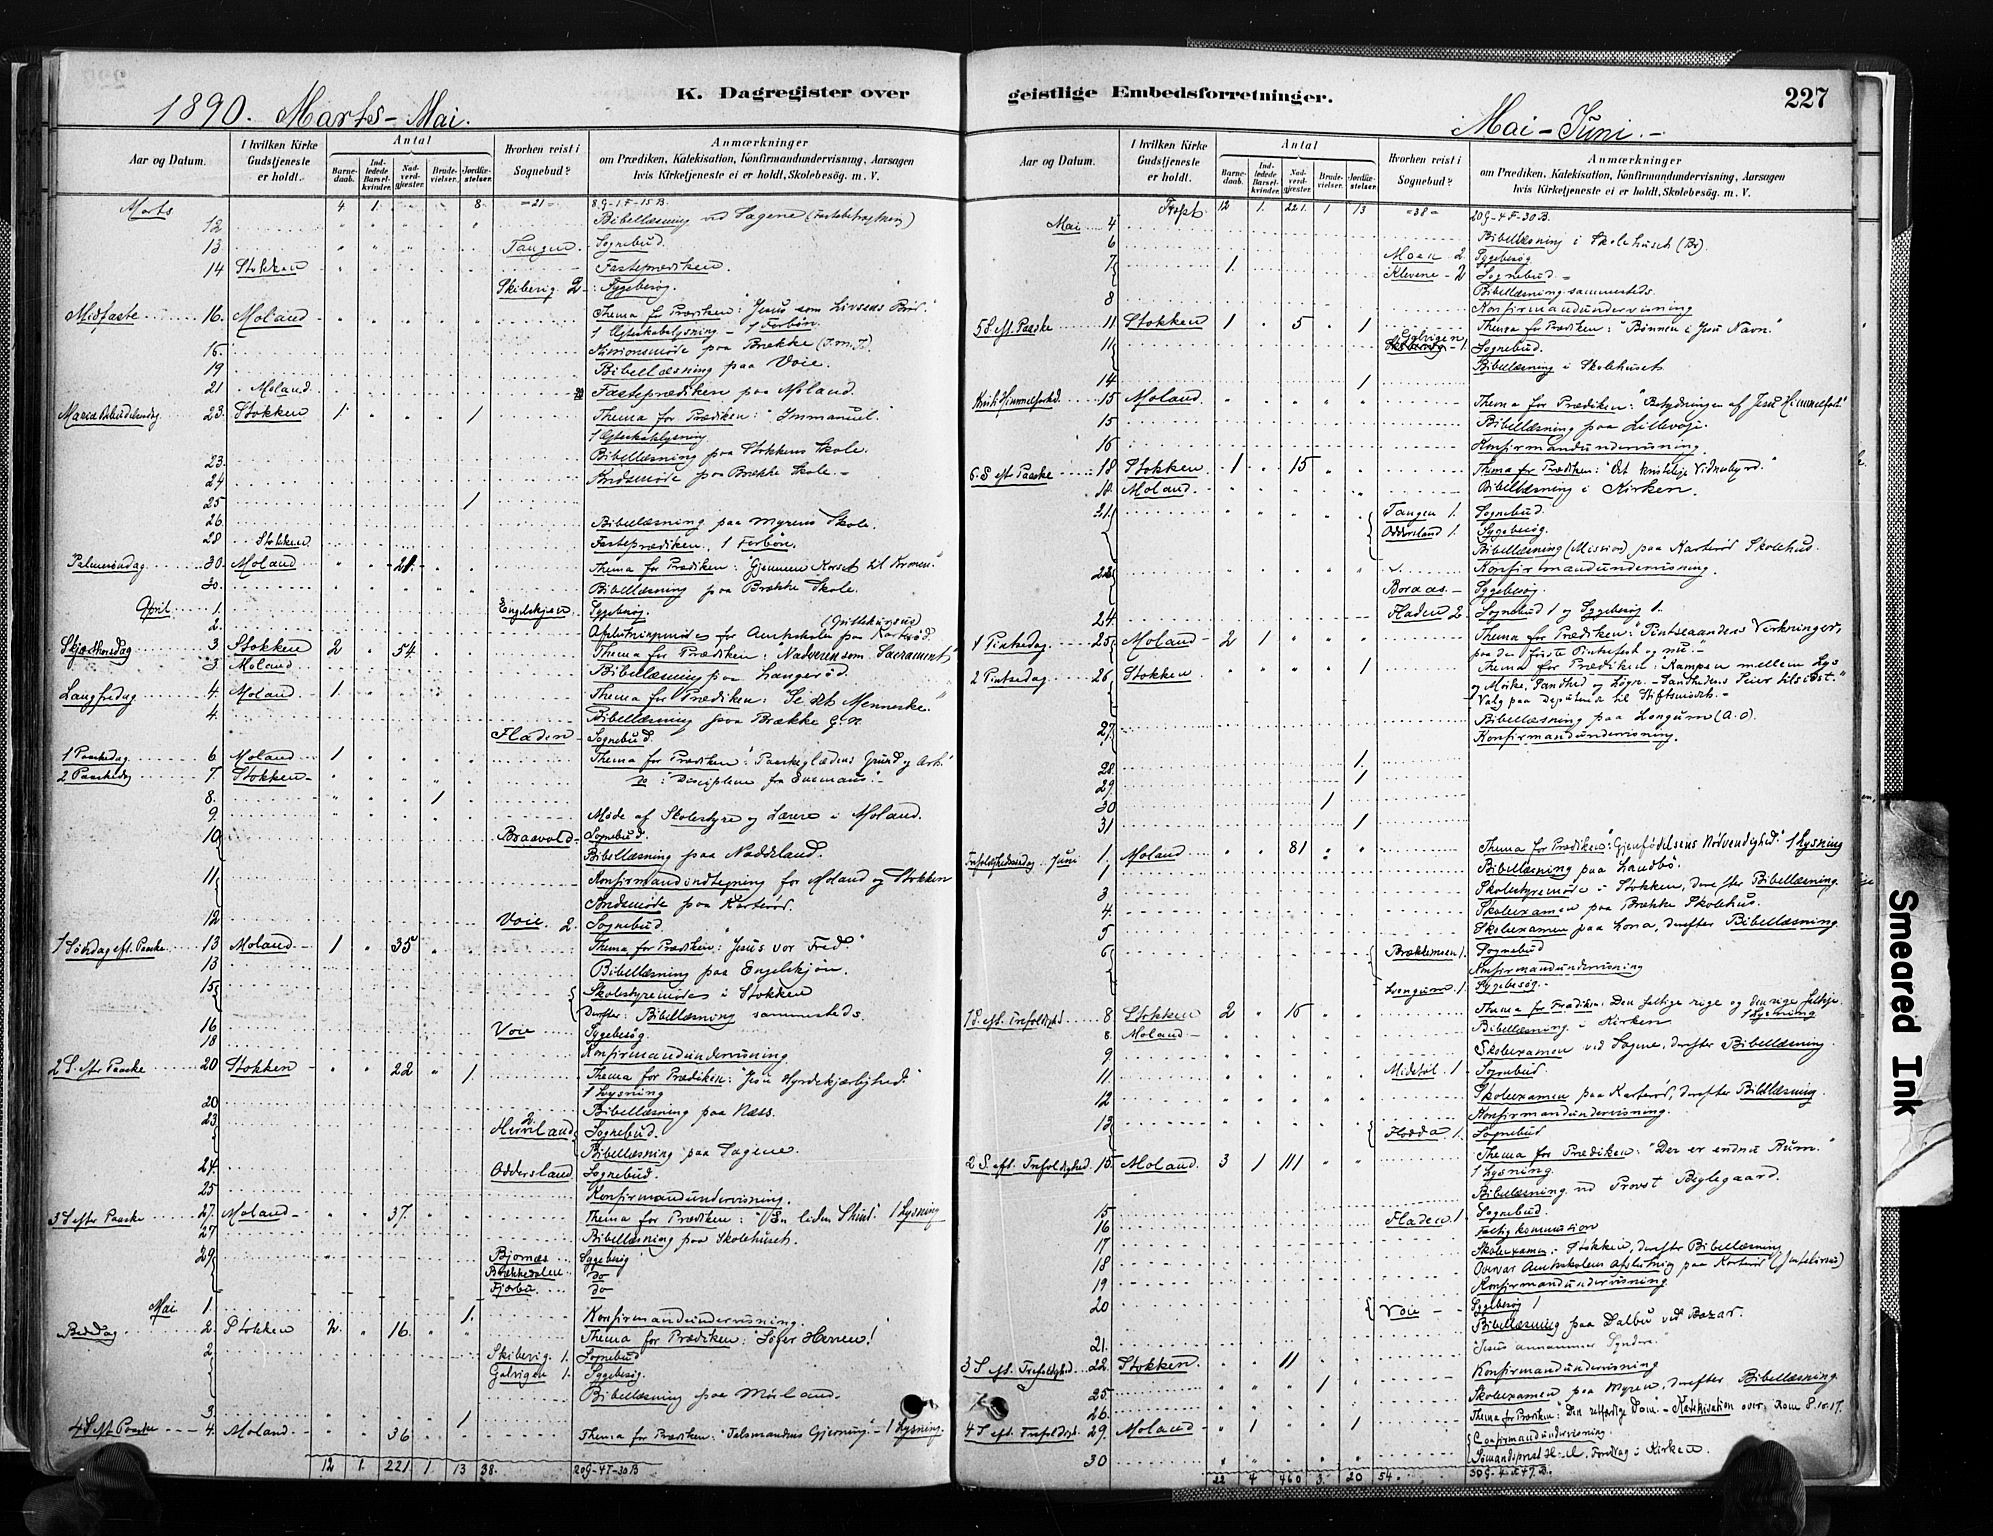 K. Dagregister over
geistlige Embedsforretninger.
227
1890. Marts - Mai.
Aar og Datum.
I hvilken Kirke Gudstjeneste er holdt.
Antal
Barne-daab.
Ind-ledede Barsel-kvinder.
Nad-verd-gjester.
Brude-vielser.
Jordfæ-stelser.
Hvorhen reist i Sognebud?
Anmærkninger
om Prædiken, Katekisation, Konfirmandundervisning, Aarsagen
hvis Kirketjeneste ei er holdt, Skolebesøg. m. V.
Marts 4 1. 8. =21= 8.G-1.F-15B.
12 Bibellæsning ved Sagene
13 Tangen Sognebud.
14 Stokken Fasteprædiken.
Skiberig 2 Sygebesøg.
Midfaste 16. Moland Thema for Prædiken: "Jesus som Livsens Brød."
1 Ægteskabslysning - 1 Forbøn.
16. Missionsmøde paa Brække
19 Bibellæsning paa Voie.
21 Moland Fasteprædiken paa Moland.
Mariæ Bebudelsesdag 23. Stokken 1. 1 Thema for Prædiken: "Immanuel."
1 Ægteskabslysning
23. Bibellæsning paa Stokkens Skole.
24 paa Brække Skole.
25 1
26. Bibellæsning paa Myrens Skole.
28 Stokken Fasteprædiken. 1 Forbøn.
Palmesøndag 30. Moland 21. Thema for Prædiken: "Gjennem Korset til Kronen."
30. Bibellæsning paa Brække Skole.
April 1. Engelskjøn Sygebesøg.
2. for Amtskolen paa Karterød.
Skjærthorsdag 3. Stokken 2 54. Thema for Prædiken: "Nadveren som Sacrament"
3 Moland Bibellæsning paa Langerød.
Langfredag 4. Moland 1. Thema for Prædiken: "Se det Menneske."
4. Bibellæsning paa Brække
Fladen Sognebud.
1 Paaskedag 6 Moland 1 Thema for Prædiken: "Paaskeglædens Grund og Art."
2 Paaskedag 7. Stokken do "Disciplene fra Emmaus".
8. 1
9. Møde af Skolestyre og Lærere i Moland.
10 Braavold Sognebud.
Bibellæsning paa Naddeland.
11 Konfirmandindtegning for Moland og Stokken
paa Karterød.
12 Voie 2. Sognebud
1 Søndag eft. Paaske 13 Moland 1 35 Thema for Prædiken: "Jesus vor Fred."
13 Bibellæsning paa Engelskjøn.
15 Skolestyremøde i Stokken
Derefter: Bibellæsning sammesteds.
16 Voie Sygebesøg
18 Konfirmandundervisning
2 S. efter Paaske 20 Stokken 22 1. Thema for Prædiken: "Jesu Hyrdekjærlighed."
1 Lysning
20 Bibellæsning paa Næss.
23. 2. Sognebud.
Bibellæsning paa Sagene.
24. Oddersland Sognebud.
25 Konfirmandundervisning.
3 S efter Paaske 27. Moland 37. Thema for Prædiken: "En liden Stund." 1 Lysning
27 Bibellæsning paa Skolehuset.
29 Bjornæs Sygebesøg
Brækkedalen do
Fjærbu do
Mai 1. 1. Konfirmandundervisning.
Bededag 2. Stokken 2. 16. Thema for Prædiken: "Søger Herren!
2 Skiberig 1. Sognebud
Galvigen 1. Sygebesøg.
Bibellæsning paa Mørland.
3. 1
4 S eft Paaske 4. Moland 36 Thema for Prædiken: "Talsmandens Gjerning." - 1 Lysning.
12 1. 221. 1. 13 38. 20G-4F-30B
Mai - Juni. -
Aar og Datum.
I hvilken Kirke Gudstjeneste er holdt.
Antal
Barne-daab.
Ind-ledede Barsel-kvinder.
Nad-verd-gjester.
Brude-vielser.
Jordfæ-stelser.
Hvorhen reist i Sognebud?
Anmærkninger
om Prædiken, Katekisation, Konfirmandundervisning, Aarsagen
hvis Kirketjeneste ei er holdt, Skolebesøg, m. V.
Trspt. 12 1. 221. 1 13 =38= 20G-4F-30B.
Mai 4 Bibellæsning i Skolehuset (Br).
6 Moen 2 Sygebesøg
7 1. Klevene - 2 Sognebud
Bibellæsning sammesteds.
8 Konfirmandundervisning
5 S. eft. Paaske 11 Stokken 1 5 1 Thema for Prædiken: "Bønnen i Jesu Navn."
11 Galvigen 1. Sognebud.
Bibellæsning i Skolehuset
14 1
Kristi Himmelfartsd. 15 Moland Thema for Prædiken: "Betydningen af Jesu Himmelfart"
15 Bibellæsning paa Lillevoje.
16 Konfirmandundervisning.
6. S eft Paaske 18 Stokken 1 15 Thema for Prædiken: "Det kristelige Vidnesbyrd."
18 Moland Bibellæsning i Kirken.
21. Tangen 1. Sognebud.
Oddersland 1. Sygebesøg
Bibellæsning (Mission) paa Karterød Skolehus.
22 Konfirmandundervisning.
Boraas Sygebesøg.
24 Fladen 2 Sognebud 1 og Sygebesøg 1.
1 Pintsedag 25 Moland 2 1 Thema for Prædiken: "Pintseaandens Virkninger,
paa den første Pintsefest og nu."
2 Pintsedag 26. Stokken 1 Thema for Prædiken: Kampen mellem Lys
og Mørke, Sandhed og Løgn. - Sandhedens Seier tilsidst."
Valg paa Deputerede til Stiftsmødet.
27 Bibellæsning paa Longum (A.O).
Konfirmandundervisning.
28. 1.
29 1
30 1
31 1
Trefoldighedssøndag Juni 1. Moland 81 Thema for Prædiken: "Gjenfødelsens Nødvendighed." 1 Lysning
1 Bibellæsning paa Landbø.
3 Skolestyremøde i Stokken, derefter Bibellæsning.
4. Skoleexamen paa Brække Skolehus.
5 Skoleexamen paa Lona, derefter Bibellæsning.
6 Brækkemoen 1. Sognebud
Konfirmandundervisning
Longum 1. Sygebesøg.
1 S. eft. Trefoldighed 8 Stokken 2 16 Thema for Prædiken: Den fattige rige og den rige fattige.
1 Lysning
8. Moland Bibellæsning i Kirken
9 Skoleexamen ved Sagene, derefter Bibellæsning
11. Midtbøl. 1 Sognebud
12 Skoleexamen paa Karterød, derefter Bibellæsning.
13 Konfirmandundervisning.
Flodda 1. Sognebud
2 S. eft. Trefoldighed 15. Moland. 3 1 111 Thema for Prædiken: "Der er endnu Rum."
1 Lysning.
Bibellæsning ved Provst Beglegaard.
15 Fladen 1 Sognebud.
16
17 Skoleexamen i Stokken, derefter Bibellæsning
18 Overvar Amtsskolens Afslutning paa Karterød
19 Konfirmandundervisning
20 Voie Sygebesøg 1
Bibellæsning paa Dalbu ved Bazar.
21. "Jesus annammer Syndere"
3 S eft. Trefoldighed. 22. Stokken. 11 Konfirmandundervisning
25. 1 Skoleexamen paa Myren, derefter Bibellæsning
26. Thema for Prædiken: "Den retfærdige Dom." - Katekisation over Rom 8.
4 S eft. Trefoldighed. 29. Moland 1 1 Confirmandundervisning.
30 Sømandsprest Foredrag i Kirken.
22 4 460 3. 20 54.
Smeared Ink